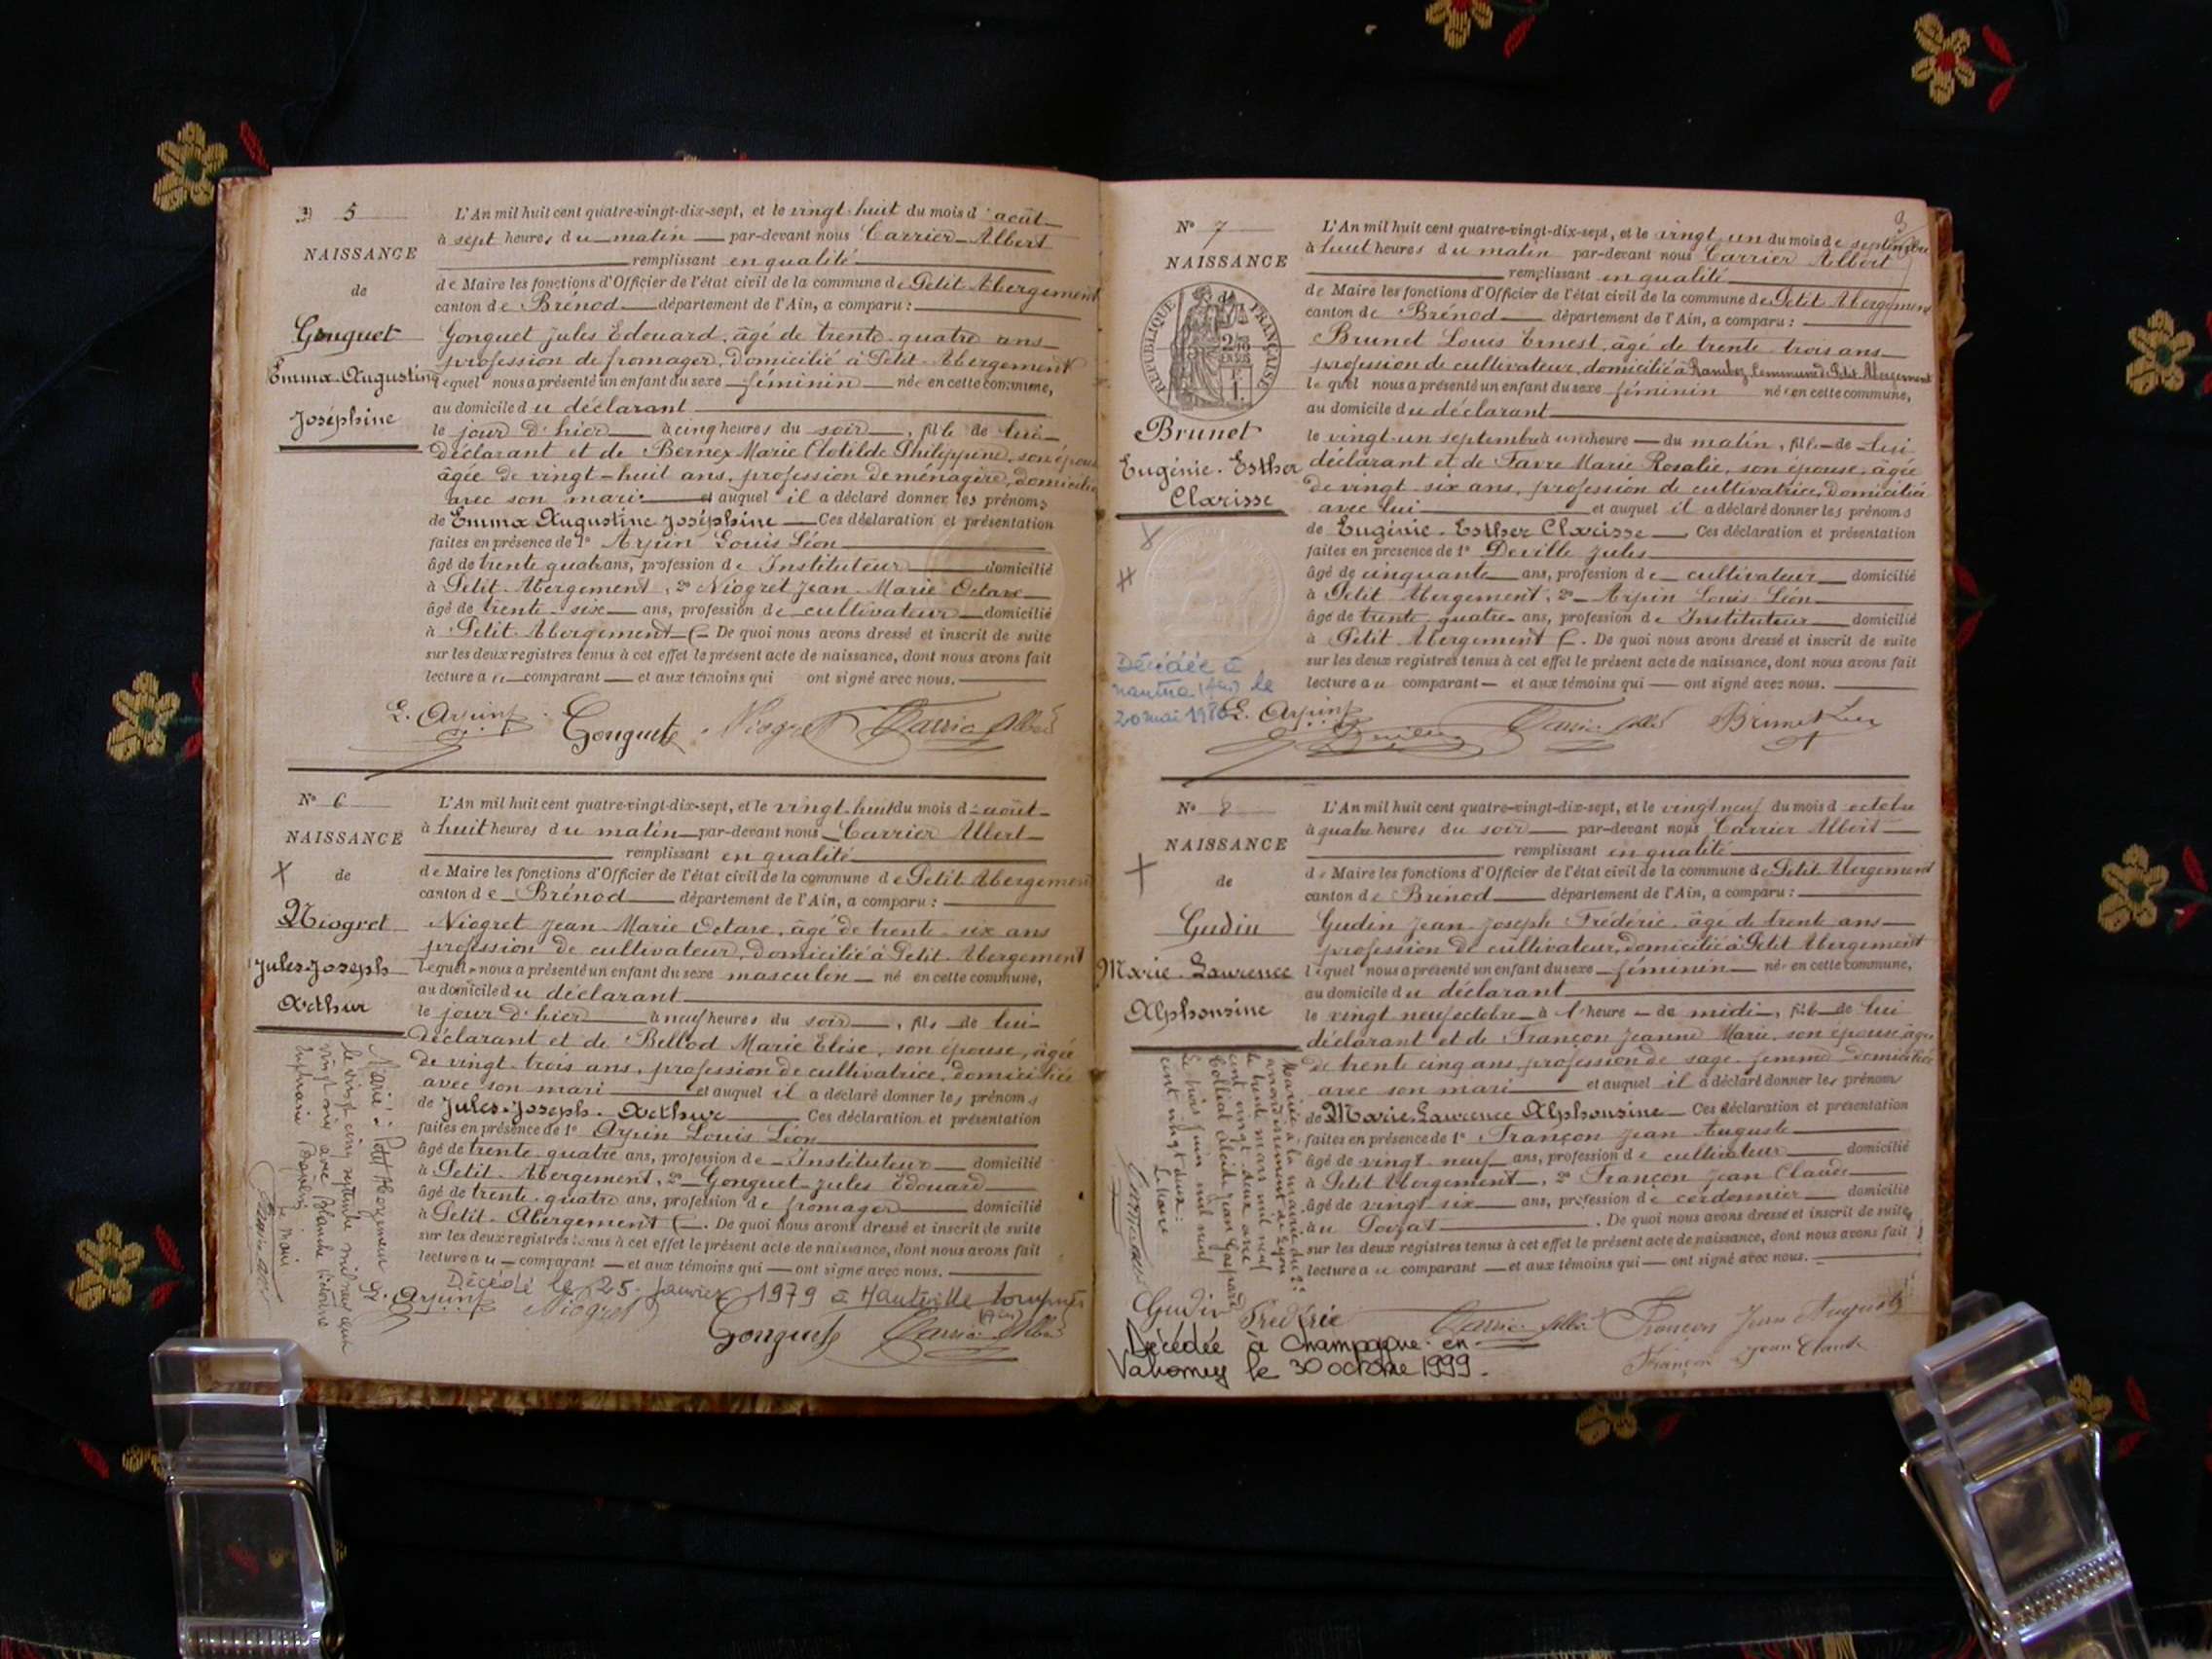 N° 5
NAISSANCE
de
Gonguet
Emma-Augustine
Joséphine
L'An mil huit cent quatre-vingt-dix-sept, et le vingt-huit du mois d'août
à sept heures du matin par-devant nous Carrier Albert
remplissant en qualité
de Maire les fonctions d'Officier de l'état civil de la commune de Petit-Abergement
canton de Brénod département de l'Ain, a comparu :
Gonguet Jules Edouard, âgé de trente-quatre ans
profession de fromager, domicilié à Petit-Abergement
lequel nous a présenté un enfant du sexe féminin né en cette commune,
au domicile du déclarant
le jour d'hier à cinq heures du soir, fille de lui
déclarant et de Bernex Marie Clotilde Philippine, son épouse
âgée de vingt-huit ans, profession de ménagère, domiciliée
avec son mari et auquel il a déclaré donner les prénoms
de Emma Augustine Joséphine Ces déclaration et présentation
faites en présence de 1° Arpin Louis Léon
âgé de trente quatre ans, profession de Instituteur domicilié
à Petit-Abergement, 2° Niogret Jean Marie Octave
âgé de trente-six ans, profession de cultivateur domicilié
à Petit-Abergement. De quoi nous avons dressé et inscrit de suite
sur les deux registres tenus à cet effet le présent acte de naissance, dont nous avons fait
lecture au comparant et aux témoins qui ont signé avec nous.
L. Arpin Gonguet Niogret Carrier Albert
N° 6
NAISSANCE
de
Niogret
Jules-Joseph
Arthur
L'An mil huit cent quatre-vingt-dix-sept, et le vingt-huit du mois d'août
à huit heures du matin par-devant nous Carrier Albert
remplissant en qualité
de Maire les fonctions d'Officier de l'état civil de la commune de Petit-Abergement
canton de Brénod département de l'Ain, a comparu :
Niogret Jean Marie Octave, âgé de trente-six ans
profession de cultivateur, domicilié à Petit-Abergement
lequel nous a présenté un enfant du sexe masculin né en cette commune,
au domicile du déclarant
le jour d'hier à neuf heures du soir, fils de lui
déclarant et de Bellod Marie Elise, son épouse, âgée
de vingt-trois ans, profession de cultivatrice, domiciliée
avec son mari et auquel il a déclaré donner les prénoms
de Jules-Joseph-Arthur Ces déclaration et présentation
faites en présence de 1° Arpin Louis Léon
âgé de trente-quatre ans, profession de Instituteur domicilié
à Petit-Abergement, 2° Gonguet Jules Edouard
âgé de trente-quatre ans, profession de fromager domicilié
à Petit-Abergement. De quoi nous avons dressé et inscrit de suite
sur les deux registres tenus à cet effet le présent acte de naissance, dont nous avons fait
lecture au comparant et aux témoins qui ont signé avec nous.
Marié à Petit Abergement
le vingt cinq septembre mil neuf cent
vingt six avec Blanche
Le Maire
Décédé le 25 janvier 1979 à Hauteville Lompnes
(Ain)
L. Arpin Niogret
Gonguet Carrier Albert
N° 7
NAISSANCE
de
RÉPUBLIQUE FRANÇAISE
Brunet
Eugénie-Esther
Clarisse
9
L'An mil huit cent quatre-vingt-dix-sept, et le vingt-un du mois de septembre
à huit heures du matin par-devant nous Carrier Albert
remplissant en qualité
de Maire les fonctions d'Officier de l'état civil de la commune de Petit-Abergement
canton de Brénod département de l'Ain, a comparu :
Brunet Louis Ernest, âgé de trente-trois ans
profession de cultivateur, domicilié à Commune de Petit-Abergement
lequel nous a présenté un enfant du sexe féminin né en cette commune,
au domicile du déclarant
le vingt-un septembre à une heure du matin, fille de lui
déclarant et de Favre Marie Rosalie, son épouse, âgée
de vingt-six ans, profession de cultivatrice, domiciliée
avec lui et auquel il a déclaré donner les prénoms
de Eugénie-Esther Clarisse Ces déclaration et présentation
faites en présence de 1° Deville Jules
âgé de cinquante ans, profession de cultivateur domicilié
à Petit-Abergement, 2° Arpin Louis Léon
âgé de trente-quatre ans, profession de Instituteur domicilié
à Petit-Abergement. De quoi nous avons dressé et inscrit de suite
sur les deux registres tenus à cet effet le présent acte de naissance, dont nous avons fait
lecture au comparant et aux témoins qui ont signé avec nous.
Décédée à
Nantua (Ain) le
20 mai 1980
L. Arpin Deville Carrier Albert Brunet
N° 8
NAISSANCE
de
Gudin
Marie-Laurence
Alphonsine
L'An mil huit cent quatre-vingt-dix-sept, et le vingt neuf du mois d'octobre
à quatre heures du soir par-devant nous Carrier Albert
remplissant en qualité
de Maire les fonctions d'Officier de l'état civil de la commune de Petit-Abergement
canton de Brénod département de l'Ain, a comparu :
Gudin Jean Joseph Frédéric, âgé de trente ans
profession de cultivateur, domicilié à Petit Abergement
lequel nous a présenté un enfant du sexe féminin né en cette commune,
au domicile du déclarant
le vingt neuf octobre à 1 heure de midi, fille de lui
déclarant et de Françon Jeanne Marie, son épouse, âgée
de trente cinq ans, profession de sage-femme domiciliée
avec son mari et auquel il a déclaré donner les prénoms
de Marie-Laurence Alphonsine Ces déclaration et présentation
faites en présence de 1° Françon Jean Auguste
âgé de vingt-neuf ans, profession de cultivateur domicilié
à Petit Abergement, 2° Françon Jean Claude
âgé de vingt six ans, profession de cordonnier domicilié
au Poizat. De quoi nous avons dressé et inscrit de suite
sur les deux registres tenus à cet effet le présent acte de naissance, dont nous avons fait
lecture au comparant et aux témoins qui ont signé avec nous.
Mariée à la mairie du 2e
arrondissement de Lyon
le trente mars mil neuf
cent vingt deux avec
Colliat Jean Gaspard
Le trois juin mil neuf
cent vingt deux.
Le Maire
Gudin Frédéric Carrier Albert Françon Jean Auguste
Françon Jean Claude
Décédée à Champagne-en-
Valromey le 30 octobre 1999.